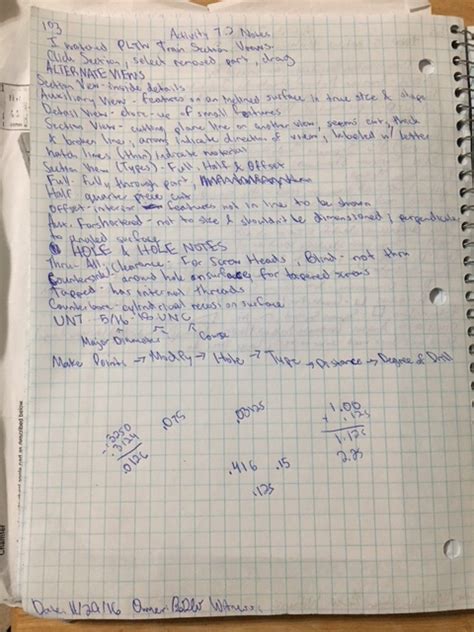 103
Activity 7.2 Notes
I watched PLTW Train Section Views.
Click Section, select removed part, drag
ALTERNATE VIEWS
Section View - inside details
Auxiliary View - Features on an inclined surface in true size & shape
Detail View - close-up of small features
Section View - cutting plane line on another view, seems cut, thick
& broken lines, arrows indicate direction of view, labeled w/ letter
lines (thin) indicate material
Section View (Types) - Full, Half & Offset
Full - fully through part,
Half - quarter piece cut
Offset - interior features not in line to be shown
Aux. Foreshortened - not to size & shouldn't be dimensioned, perpendicular
to angled surface
HOLE & HOLE NOTES
Thru All, Clearance, For Screw Heads, Blind - not thru
Countersink - around hole on surface, for tapered screws
Tapped - has internal threads
Counterbore - cylindrical recess on surface
UNT - 5/16 - 18 UNC
Major Diameter Coarse
Make Points → Modify → Hole → Type → Distance → Degree of Drill
.3250
- .3124
.0126
.075
.03125
1.00
+ .125
1.125
2.25
.416 .15
.125
Date: 11/29/16 Owner: Witness: